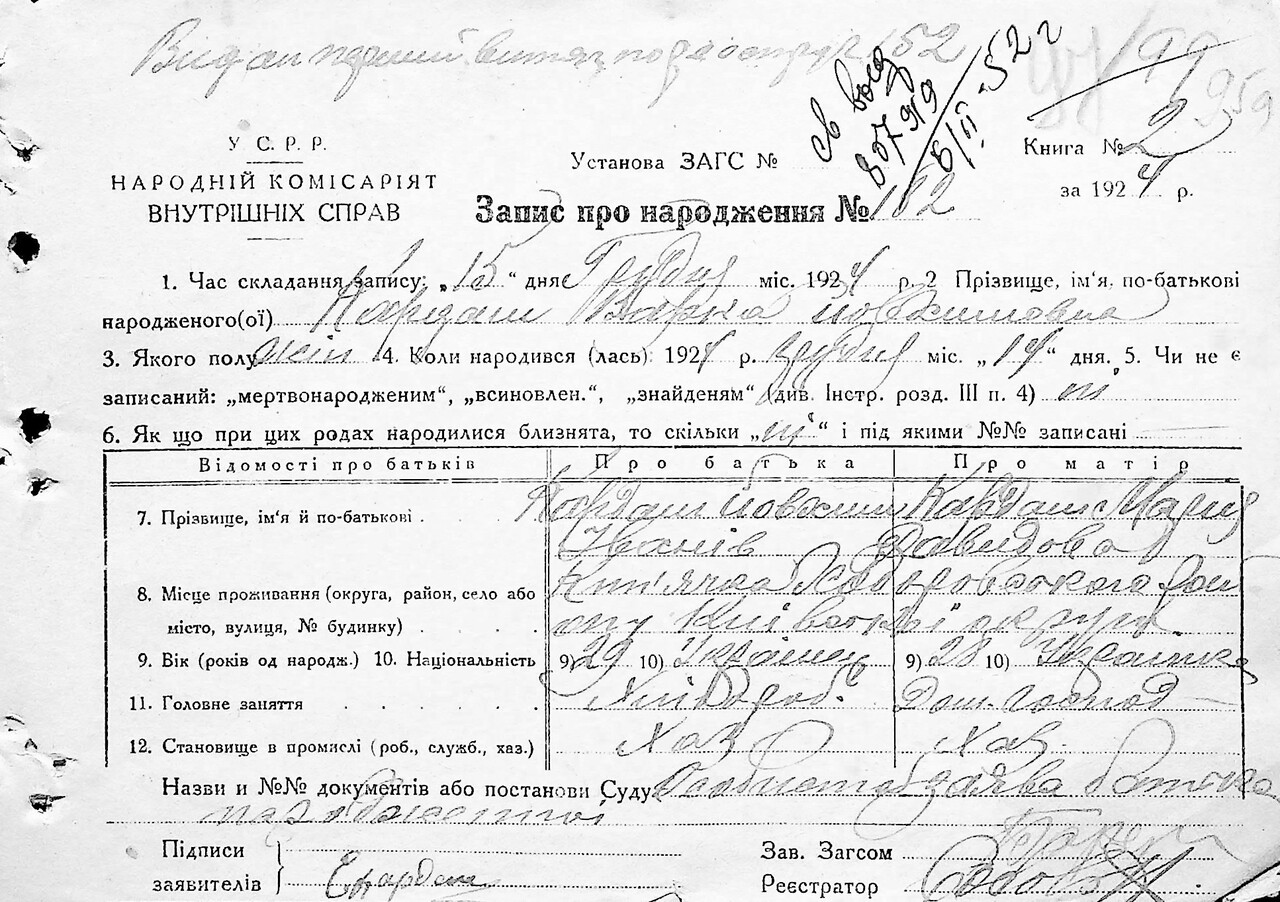 Видан перший витяг по реєстру 152
св во
807919
6/ІІ-52 г
99
959
У С. Р. Р.
НАРОДНІЙ КОМІСАРІЯТ
ВНУТРІШНІХ СПРАВ
Установа ЗАГС №
Книга № 2
за 1924 р.
Запис про народження № 152
1. Час складання запису: „15“ дня Грудня міс. 1924 р. 2 Прізвище, ім'я, по-батькові
народженого(ої) Кардаш Варка Йовхимовна
3. Якого полу жін 4. Коли народився (лась) 1924 р. грудня міс. „14“ дня. 5. Чи не є
записаний: „мертвонародженим“, „всиновлен.“, „знайденям“ (див. Інстр. розд. III п. 4) ні
6. Як що при цих родах народилися близнята, то скільки „ні“ і під якими №№ записані
Відомості про батьків Про батька Про матір
7. Прізвище, ім'я й по-батькові Кардаш Йовхим Кардаш Мария
Іванів Давидова
8. Місце проживання (округа, район, село або
місто, вулиця, № будинку)
району Київської округи
9. Вік (років од народж.) 10. Національність 9) 29 10) Українец 9) 28 10) Українка
11. Головне заняття Хлібороб Дом. господ
12. Становище в промислі (роб., служб., хаз.) Хаз Хаз
Назви и №№ документів або постанови Суду Особиста заява батька
Підписи
заявителів Кардаш
Зав. Загсом
Реєстратор